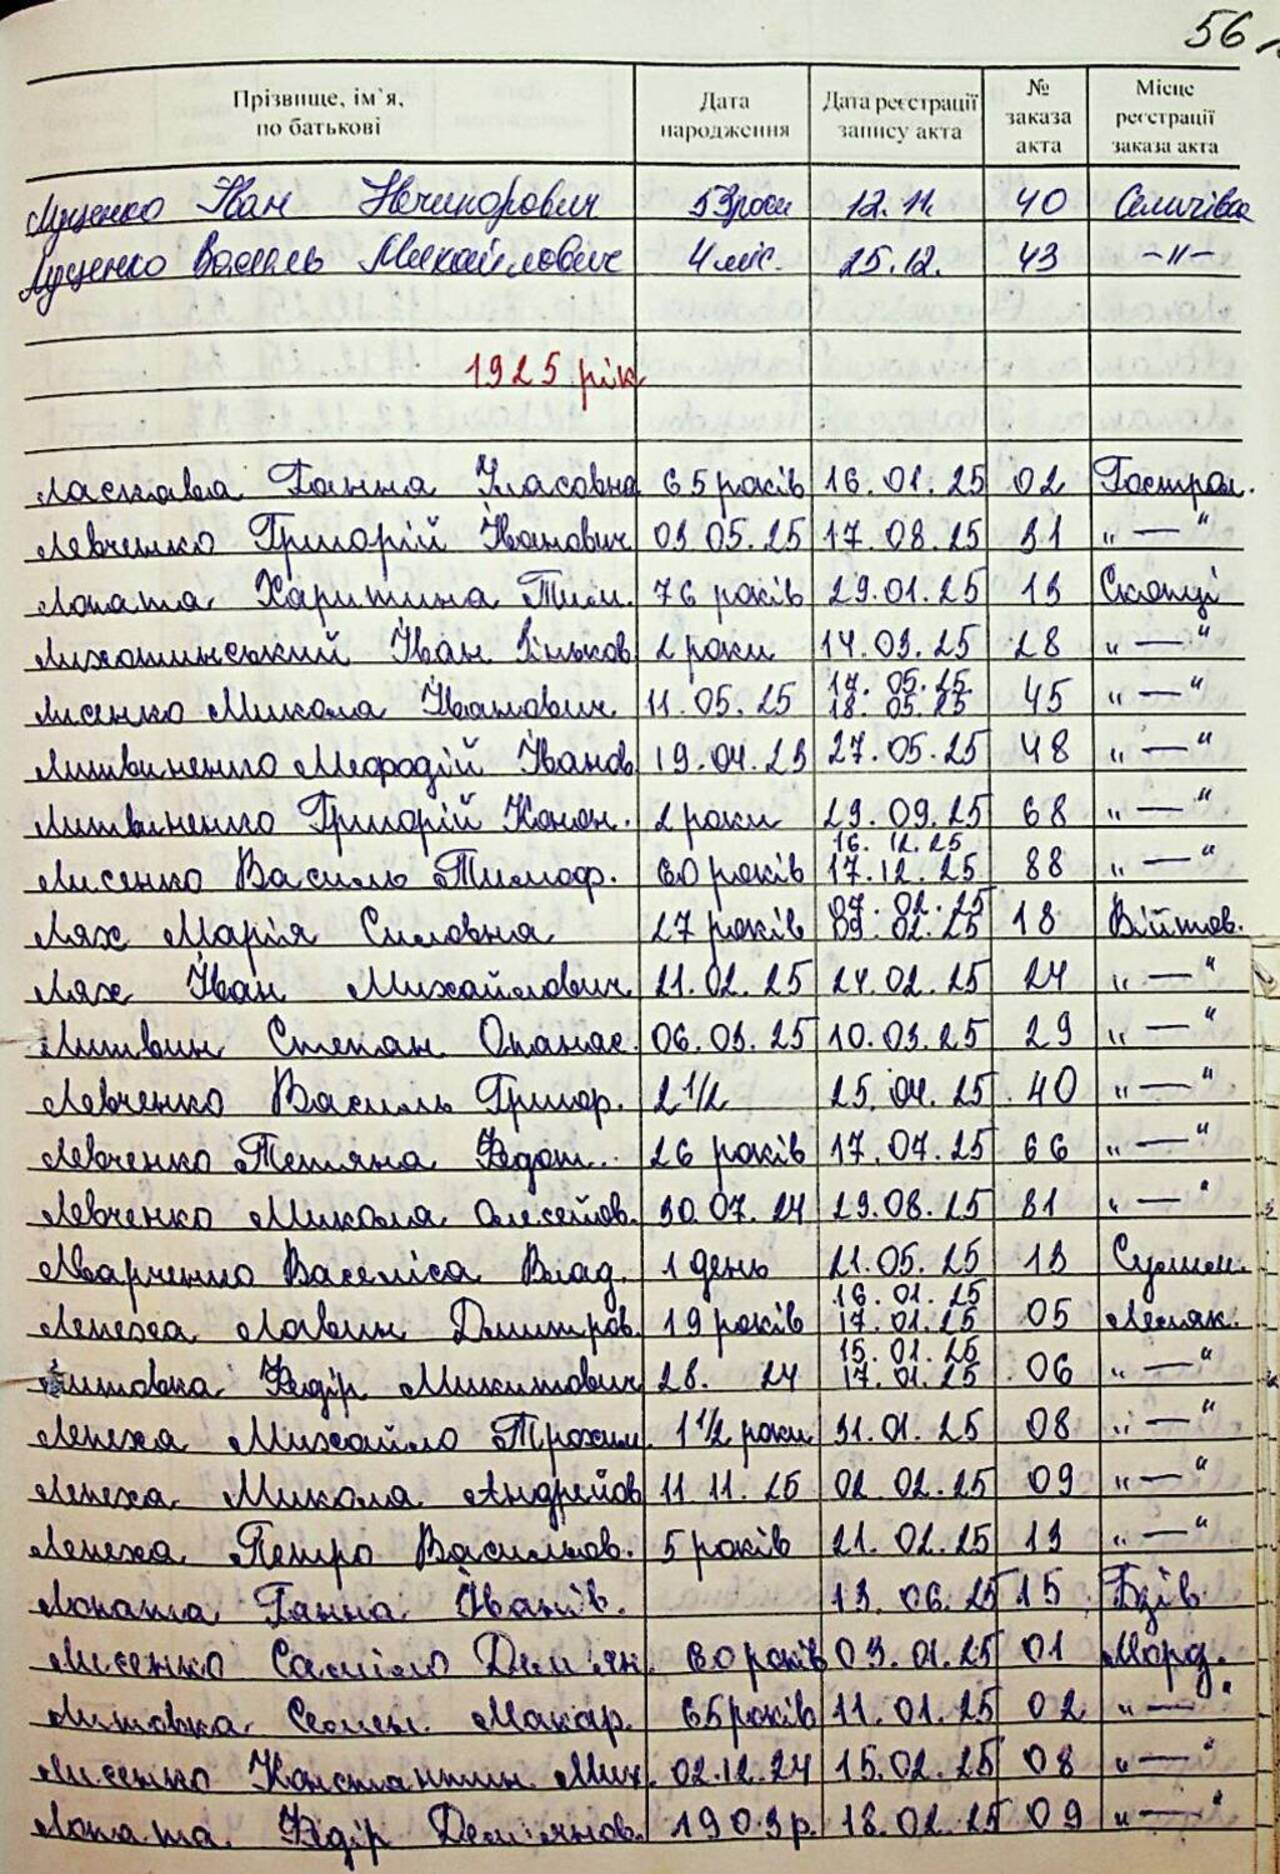 56
Прізвище, ім`я, по батькові | Дата народження | Дата реєстрації запису акта | № заказа акта | Місце реєстрації заказа акта
Луценко Іван Нечипорович 53 роки 12.11. 40 Селичівка
Луценко Василь Михайлович 4 міс. 25.12. 43 –"–
1925 рік
Ласкава Ганна Власовна 65 років 16.01.25 02 Гострол.
Левченко Григорій Іванович 03.05.25 17.08.25 31 „ — “
Лопата Харитина Тим. 76 років 29.01.25 13 Скопці
Лихошинський Іван Зіньков 2 роки 14.03.25 28 „ — “
Лисенко Микола Іванович 11.05.25 17.05.25 18.05.25 45 „ — “
Литвиненко Мефодій Іванов 19.04.23 27.05.25 48 „ — “
Литвиненко Григорій Конон. 2 роки 29.09.25 68 „ — “
Лисенко Василь Тимоф. 60 років 16.12.25 17.12.25 88 „ — “
Лях Марія Силовна 27 років 07.02.25 09.02.25 18 Війтов.
Лях Іван Михайлович 21.02.25 24.02.25 24 „ — “
Литвин Степан Опанас. 06.03.25 10.03.25 29 „ — “
Левченко Василь Григор. 2 1/2 25.04.25 40 „ — “
Левченко Тетяна Федот. 26 років 17.07.25 66 „ — “
Левченко Микола Олексійов. 30.07.24 29.08.25 81 „ — “
Лазарченко Василіса Влад. 1 день 21.05.25 13 Сулим.
Лепеха Лавин Дмитров. 19 років 16.01.25 17.01.25 05 Лепляк.
Литовка Федір Микитович 28. 24 15.01.25 17.01.25 06 „ — “
Лепеха Михайло Трохим. 1 1/2 роки 31.01.25 08 „ — “
Лепеха Микола Андрейов 11.11.25 02.02.25 09 „ — “
Лепеха Петро Васильов. 5 років 21.02.25 13 „ — “
Лопата Ганна Іванів. 13.06.25 15 Бзів
Лисенко Саміло Дем'ян. 60 років 03.01.25 01 Морд.
Литовка Семен Макар. 65 років 11.01.25 02 „ — “
Лисенко Константин Мих. 02.12.24 15.02.25 08 „ — “
Лопата Федір Дем'янов. 1903 р. 18.02.25 09 „ — “